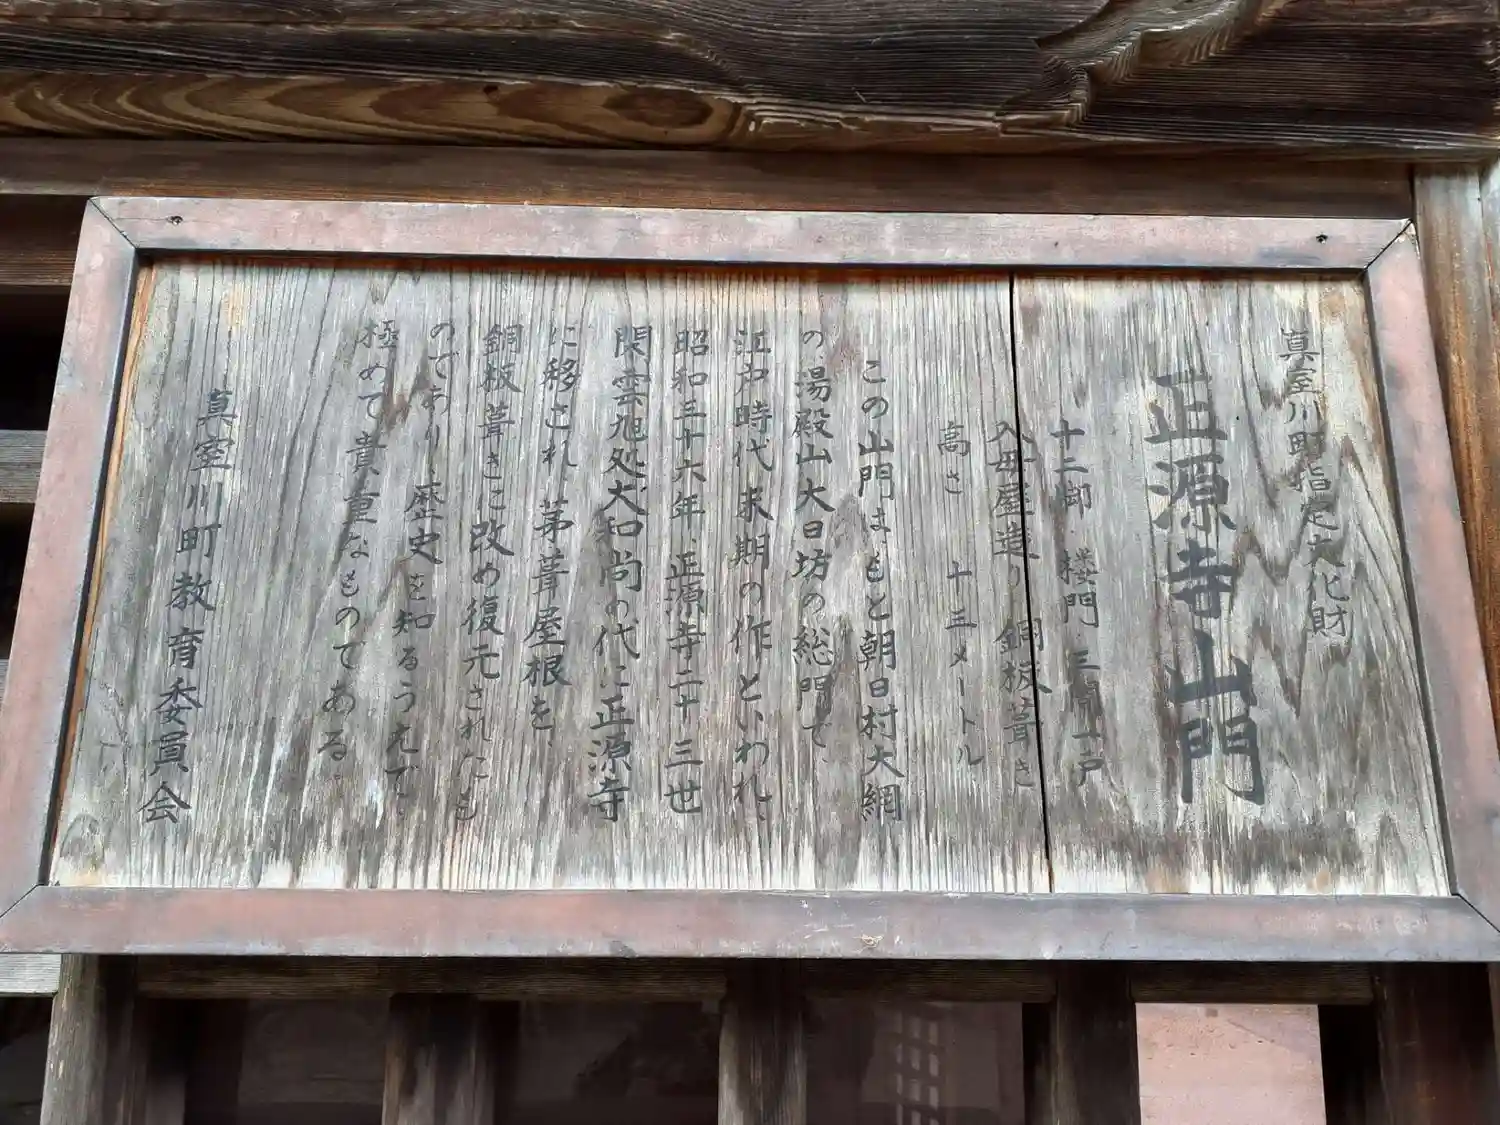 真室川町指定文化財
正源寺山門
十二脚 楼門 三間一戸
入母屋造り 銅板葺き
高さ 十三メートル
この山門はもと朝日村大網
の、湯殿山大日坊の総門で、
江戸時代末期の作といわれ、
昭和三十六年、正源寺二十三世
関雲旭処大和尚の代に正源寺
に移され、茅葺屋根を、
銅板葺きに改め復元されたも
のであり、歴史を知るうえで、
極めて貴重なものである。
真室川町教育委員会